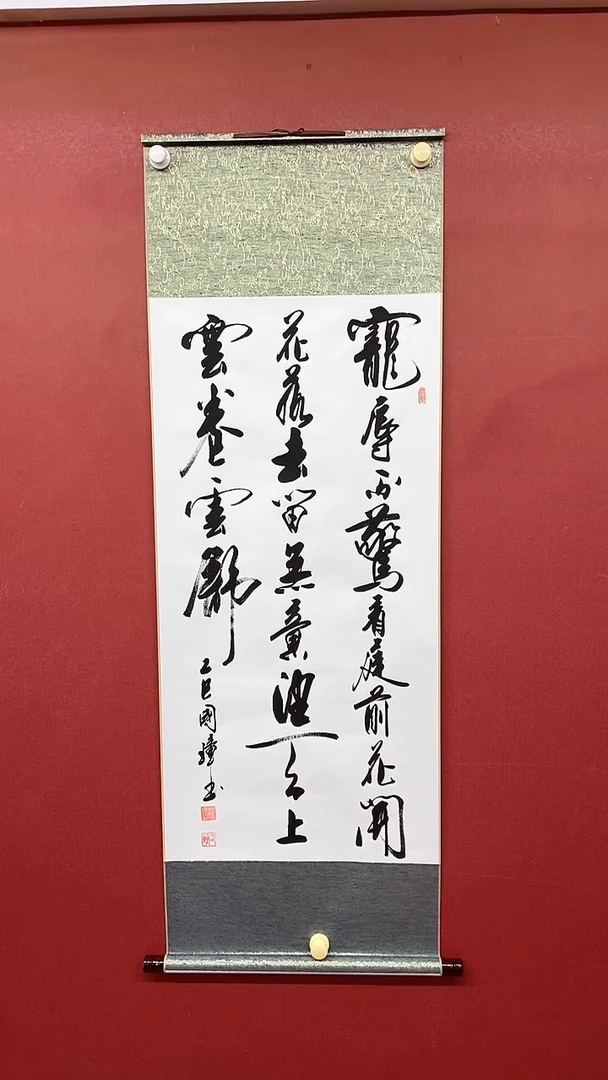 寵辱不驚看庭前花開
花落去留無意望天上
雲卷雲舒
乙巳國